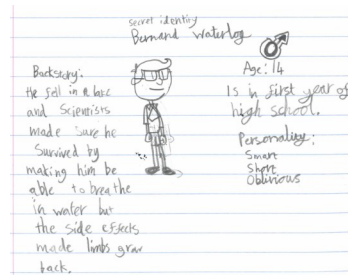 secret identity
Bernard Waterlog
Backstory:
He fell in a lake
and Scientists
made sure he
Survived by
making him be
able to breathe
in water but
the side effects
made limbs grow
back.
Age: 14
Is in first year of
high school.
Personality:
Smart
Short
Oblivious